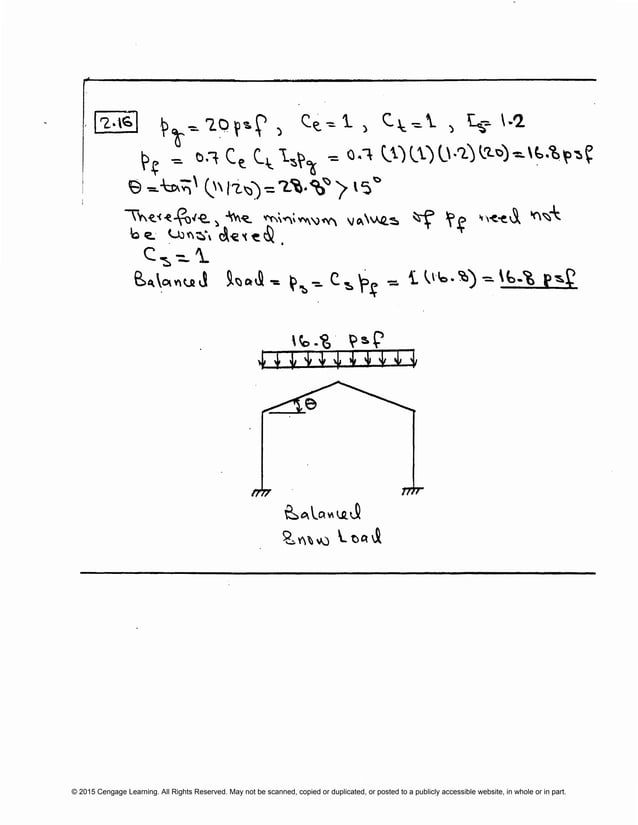 2.16 pg = 20 psf , Ce = 1 , Ct = 1 , Is = 1.2
pf = 0.7 Ce Ct Is pg = 0.7 (1)(1)(1.2)(20) = 16.8 psf
θ = tan⁻¹ (11/20) = 28.8° > 15°
Therefore, the minimum values of pf need not
be considered.
Cs = 1
Balanced load = ps = Cs pf = 1 (16.8) = 16.8 psf
16.8 psf
θ
Balanced
Snow Load
© 2015 Cengage Learning. All Rights Reserved. May not be scanned, copied or duplicated, or posted to a publicly accessible website, in whole or in part.